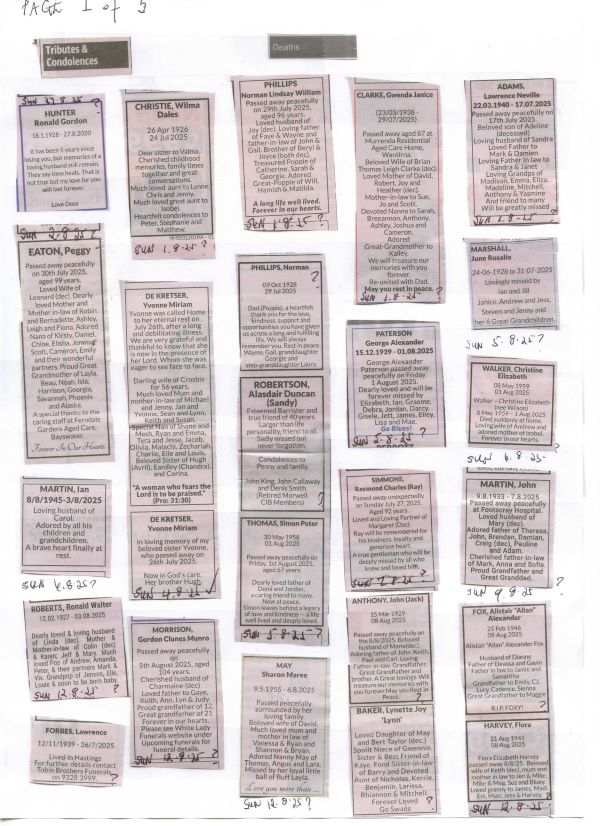 PAGE 1 of 5
Tributes &
Condolences
Deaths
SUN 27.8.25 ?
HUNTER
Ronald Gordon
18.1.1928 - 27.8.2020
It has been 5 years since
losing you, but memories of a
loving husband still remain.
They say time heals. That is
not true but my love for you
will last forever.
Love Doss
SUN 2.8.25 ?
EATON, Peggy
Passed away peacefully
on 30th July 2025,
aged 99 years.
Loved Wife of
Leonard (dec). Dearly
loved Mother and
Mother-in-law of Robin
and Bernadette, Ashley,
Leigh and Fiona. Adored
Nana of Kirsty, Daniel,
Chloe, Elisha, Jemma,
Scott, Cameron, Emily
and their wonderful
partners. Proud Great
Grandmother of Layla,
Beau, Noah, Isla,
Harrison, Georgia,
Savannah, Phoenix
and Alaska.
A special thanks to the
caring staff at Ferndale
Gardens Aged Care,
Bayswater.
Forever In Our Hearts
MARTIN, Ian
8/8/1945-3/8/2025
Loving husband of
Carol.
Adored by all his
children and
grandchildren.
A brave heart finally at
rest.
SUN 6.8.25?
ROBERTS, Ronald Walter
12.02.1927 - 03.08.2025
Dearly loved & loving husband
of Linda (dec). Mother &
Mother-in-Law of Colin (dec)
& Karen, Jeff & Mary. Much
loved Pop of Andrew, Amanda,
Peter, & their partners Mark &
Viv. Grandpop of Jenson, Elle,
Louis & soon to be born baby.
SUN 12.8.25 ?
FORBES, Lawrence
12/11/1939 - 26/7/2025
Lived in Hastings
For further details contact
Tobin Brothers Funerals
on 9328 3999 ?
CHRISTIE, Wilma
Dales
26 Apr 1926
24 Jul 2025
Dear sister to Valma.
Cherished childhood
memories, family times
together and great
conversations.
Much loved aunt to Lynne,
Chris and Jenny.
Much loved great aunt to
Isobel.
Heartfelt condolences to
Peter, Stephanie and
Matthew.
SUN 1.8.25 ?
DE KRETSER,
Yvonne Miriam
Yvonne was called Home
to her eternal rest on
July 26th, after a long
and debilitating illness.
We are very grateful and
thankful to know that she
is now in the presence of
her Lord, Whom she was
eager to see face to face.
Darling wife of Crosbie
for 56 years.
Much loved Mum and
mother-in-law of Michael
and Jenny, Ian and
Yvonne, Sean and Lynn,
Keith and Susan.
Special Nan of Shane and
Mesh, Ryan and Emma,
Kyra and Jesse, Jacob,
Olivia, Malachi, Zechariah,
Charlie, Elle and Louis.
Beloved Sister of Hugh
(Avril), Eardley (Chandra),
and Corina.
"A woman who fears the
Lord is to be praised."
(Pro: 31:30)
DE KRETSER,
Yvonne Miriam
In loving memory of my
beloved sister Yvonne,
who passed away on
26th July 2025.
Now in God's care.
Her brother Hugh.
SUN 4.8.25
MORRISON,
Gordon Clunes Munro
Passed away peacefully
on
5th August 2025, aged
104 years.
Cherished husband of
Charmaine (dec)
Loved father to Gaye,
Keith, Ann, Lyn & Judy.
Proud grandfather of 12,
Great grandfather of 21
Forever in our hearts.
Please see White Lady
Funerals website under
Upcoming funerals for
funeral details.
SUN 12.8.25 ?
PHILLIPS
Norman Lindsay William
Passed away peacefully
on 29th July 2025,
aged 96 years.
Loved husband of
Joy (dec). Loving father
of Faye & Wayne and
father-in-law of John &
Gail. Brother of Beryl &
Joyce (both dec).
Treasured Popple of
Catherine, Sarah &
Georgie. Adored
Great-Popple of Will,
Hamish & Matilda.
A long life well lived.
Forever in our hearts.
SUN 1.8.25 ?
PHILLIPS, Norman
?
09 Oct 1928
29 Jul 2025
Dad (Popple), a heartfelt
thank you for the love,
kindness, support and
opportunities you have given
us across a long and fulfilling
life. We will always
remember you. Rest in peace.
Wayne, Gail, granddaughter
Georgie and
step-granddaughter Laura.
ROBERTSON,
Alasdair Duncan
(Sandy)
Esteemed Barrister and
true friend of 40 years.
Larger than life
personality, friend to all.
Sadly missed but
never forgotten.
Condolences to
Penny and family.
John King, John Callaway
and Denis Smith
(Retired Morwell
CIB Members)
?
THOMAS, Simon Peter
30 May 1958
01 Aug 2025
Passed away peacefully on
Friday, 1st August 2025,
aged 67 years
Dearly loved father of
Demi and Jordan,
a caring friend to many.
Now at peace.
Simon leaves behind a legacy
of love and kindness — a life
well lived and deeply loved.
SUN 5.8.25 ?
MAY
Sharon Maree
9.5.1955 - 6.8.2025
Passed peacefully
surrounded by her
loving family.
Beloved wife of David.
Much loved mum and
mother in law of
Vanessa & Ryan and
Shannon & Bryan.
Adored Nanny May of
Thomas, Angus and Lara.
Missed by her loyal little
ball of fluff Layla.
Love you more than ...
SUN 12.8.25?
CLARKE, Gwenda Janice
(23/03/1938 -
29/07/2025)
Passed away aged 87 at
Murrenda Residential
Aged Care Home,
Wantirna.
Beloved Wife of Brian
Thomas Leigh Clarke (dec).
Loved Mother of David,
Robert, Joy and
Heather (dec).
Mother-in-law to Sue,
Jo and Scott.
Devoted Nanna to Sarah,
Breeannon, Anthony,
Ashley, Joshua and
Cameron.
Adored
Great-Grandmother to
Kalley.
We will treasure our
memories with you
forever.
Re-united with Dad.
May you rest in peace.
SUN 1.8.25 ?
PATERSON
George Alexander
15.12.1939 - 01.08.2025
George Alexander
Paterson passed away
peacefully on Friday
1 August 2025.
Dearly loved and will be
forever missed by
Elizabeth, Ian, Graeme,
Debra, Jordan, Darcy,
Gisele, Jett, James, Elley,
Lisa and Mae.
Go Blues!
SUN 5.8.25 ?
SIMMONS,
Raymond Charles (Ray)
Passed away unexpectedly
on Sunday July 27, 2025.
Aged 92 years
Loved and Loving Partner of
Margaret (Dec).
Ray will be remembered for
his kindness, loyalty and
generous heart.
A true gentleman who will be
deeply missed by all who
knew and loved him.
SUN 7.8.25 ?
ANTHONY, John (Jack)
15 Mar 1929
08 Aug 2025
Passed away peacefully on
the 8/8/2025. Beloved
husband of Marie(dec).
Adoring father of John, Keith,
Paul and Carl. Loving
Father-in-law, Grandfather,
Great Grandfather and
brother. A Great Innings. Will
treasure our memories with
you forever.May you Rest in
Peace.
?
BAKER, Lynette Joy
'Lynn'
Loved Daughter of May
and Bert Taylor (dec.)
Spoilt Niece of Gwennie.
Sister & Best Friend of
Kaye. Fond Sister-in-law
of Barry and Devoted
Aunt of Nicholas, Kerrie,
Benjamin, Larissa,
Rhiannon & Mitchell.
Forever Loved
Go Swans
?
ADAMS,
Lawrence Neville
22.03.1940 - 17.07.2025
Passed away peacefully on
17th July 2025.
Beloved son of Adeline
(deceased)
Loving husband of Sandra
Loved Father to
Mark & Damien
Loving Father in law to
Sandra & Janet
Loving Grandpa of
Madison, Emma, Eliza,
Madeline, Mitchell,
Anthony & Yasmine
And friend to many
Will be greatly missed
SUN 1.8.25 ?
MARSHALL,
June Rosalie
24-06-1928 to 31-07-2025
Lovingly missed by
Ian and Jill
Janice, Andrew and Jess,
Steven and Jenny and
her 6 Great Grandchildren.
SUN 5.8.25?
WALKER, Christine
Elizabeth
08 May 1959
01 Aug 2025
Walker – Christine Elizabeth
(nee Wilson)
8 May 1959 – 1 Aug 2025
Died suddenly at home.
Loving wife of Andrew and
adored mother of Isobel.
Forever in our hearts.
SUN 6.8.25 ?
MARTIN, John
9.8.1933 - 7.8.2025
Passed peacefully at
Footscray Hospital.
Loved husband of
Mary (dec).
Adored father of Theresa,
John, Brendan, Damian,
Craig (dec), Pauline
and Adam.
Cherished father-in-law
of Mark, Anna and Sofia.
Proud Grandfather and
Great Granddad.
SUN 9.8.25 ?
FOX, Alistair "Allan"
Alexander
25 Feb 1946
08 Aug 2025
Alistair "Allan" Alexander Fox
Husband of Dianne
Father of Eleassa and Gavin
Father in law to Jamie and
Samantha
Grandfather to Emily, CJ,
Lucy, Cadence, Sienna
Great Grandfather to Maggie
R.I.P. FOXY!
HARVEY, Flora
21 Aug 1941
08 Aug 2025
Flora Elizabeth Harvey
passed away 8/8/25. Beloved
wife of Keith (dec), mum and
mother in law to Jen & Mike,
Mike & Meg, Suz and Bluey.
Loved granny to James, Madi,
Em, Matt, Jess & Harvey.
SUN 12.8.25 ?